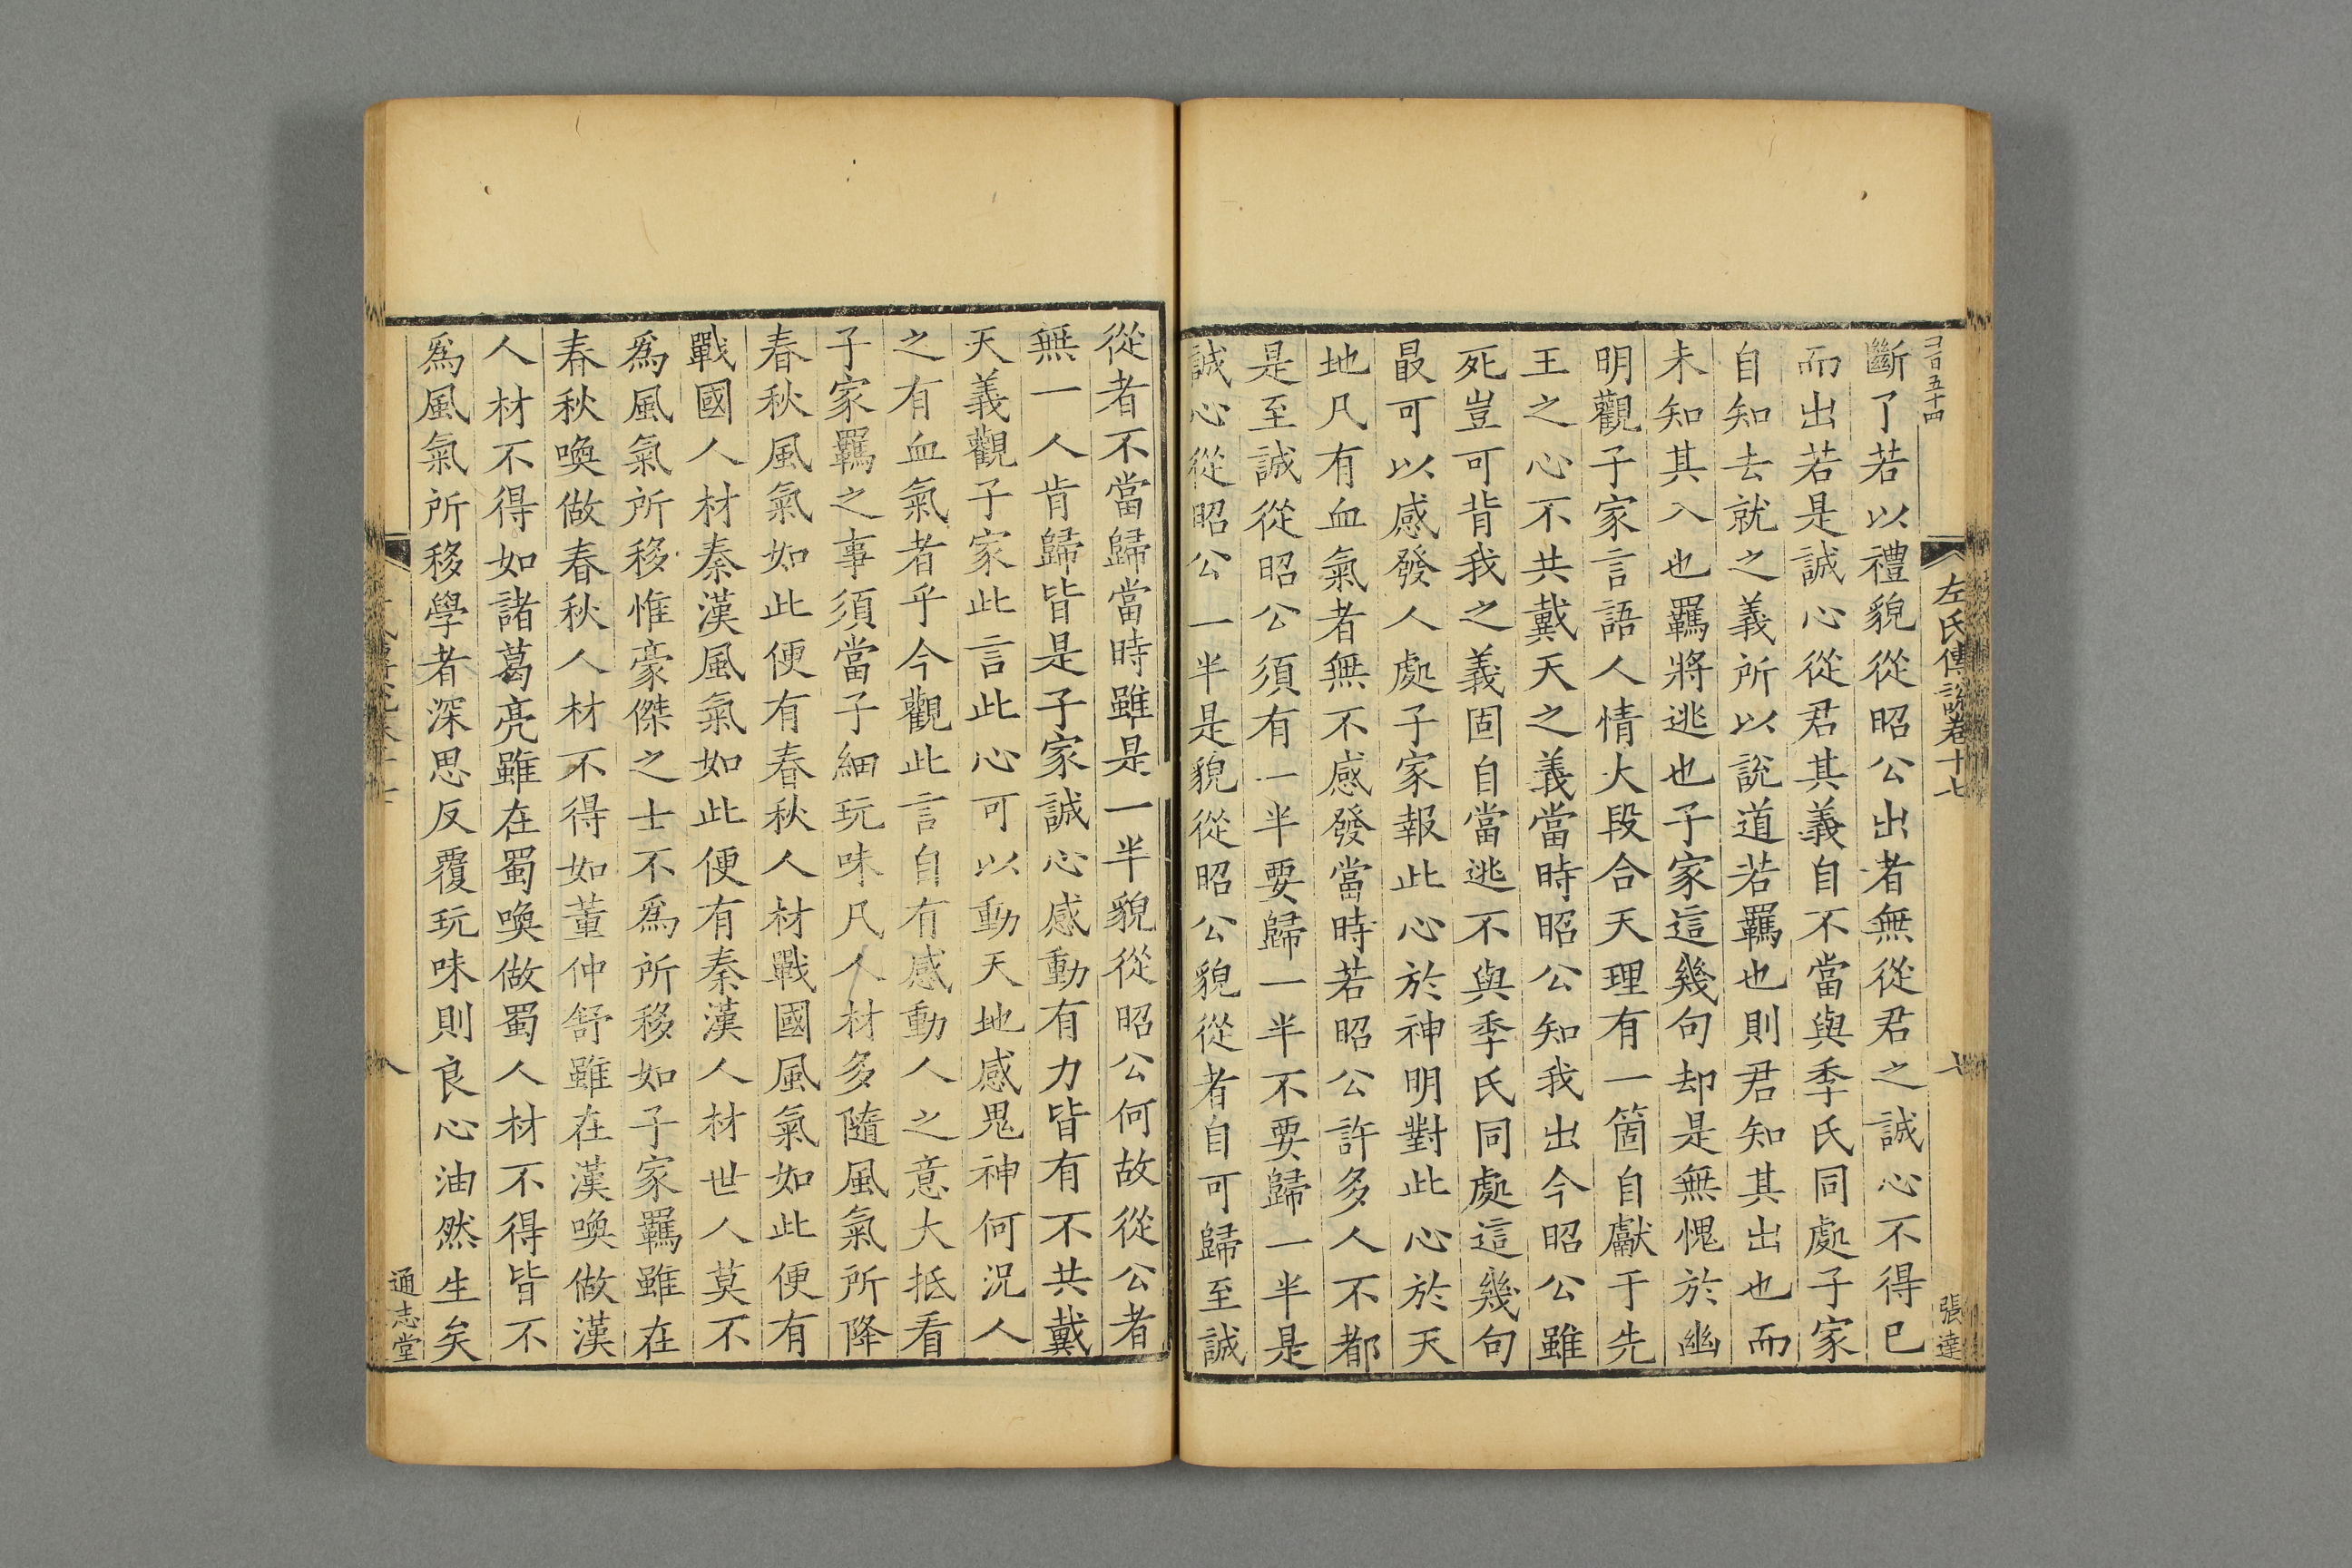 左氏傳說卷十七
張達
斷了若以禮貌從昭公出者無從君之誠心不得已
而出若是誠心從君其義自不當與季氏同處子家
自知去就之義所以說道若羈也則君知其出也而
未知其入也羈將逃也子家這幾句却是無愧於幽
明觀子家言語人情大段合天理有一箇自獻于先
王之心不共戴天之義當時昭公知我出今昭公雖
死豈可背我之義固自當逃不與季氏同處這幾句
最可以感發人處子家報此心於神明對此心於天
地凡有血氣者無不感發當時若昭公許多人不都
是至誠從昭公須有一半要歸一半不要歸一半是
誠心從昭公一半是貌從昭公貌從者自可歸至誠
從者不當歸當時雖是一半貌從昭公何故從公者
無一人肯歸皆是子家誠心感動有力皆有不共戴
天義觀子家此言此心可以動天地感鬼神何況人
之有血氣者乎今觀此言自有感動人之意大抵看
子家羈之事須當子細玩味凡人材多隨風氣所降
春秋風氣如此便有春秋人材戰國風氣如此便有
戰國人材秦漢風氣如此便有秦漢人材世人莫不
爲風氣所移惟豪傑之士不爲所移如子家羈雖在
春秋喚做春秋人材不得如董仲舒雖在漢喚做漢
人材不得如諸葛亮雖在蜀喚做蜀人材不得皆不
爲風氣所移學者深思反覆玩味則良心油然生矣
八
通志堂